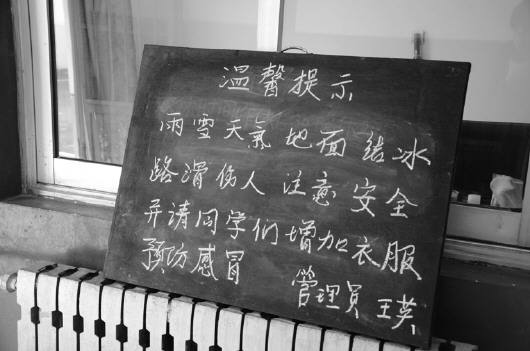 温馨提示
雨雪天氣 地面 结冰
路滑伤人 注意 安全
并请同学们增加衣服
预防感冒 管理員 王英